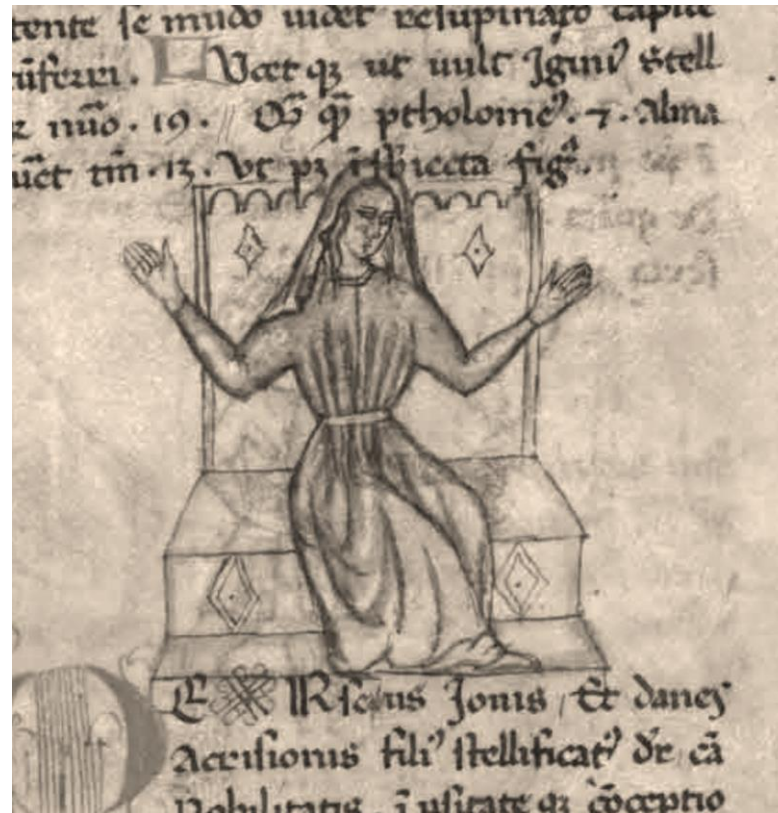 tente se mūdo uidet resupinato capite
ūferri. ut uult Iginiꝰ Stell
nūo . 19 . ptholomeꝰ . 7 . Alma
uet tm̄ . 13 . Vt pꝫ ī sbiecta figᵃ.
E Rseus Iouis / Et daney
Accrisionis filiꝰ stellificatꝰ dr̄ cā
Nobilitatis . ī usitate qꝫ cōceptio